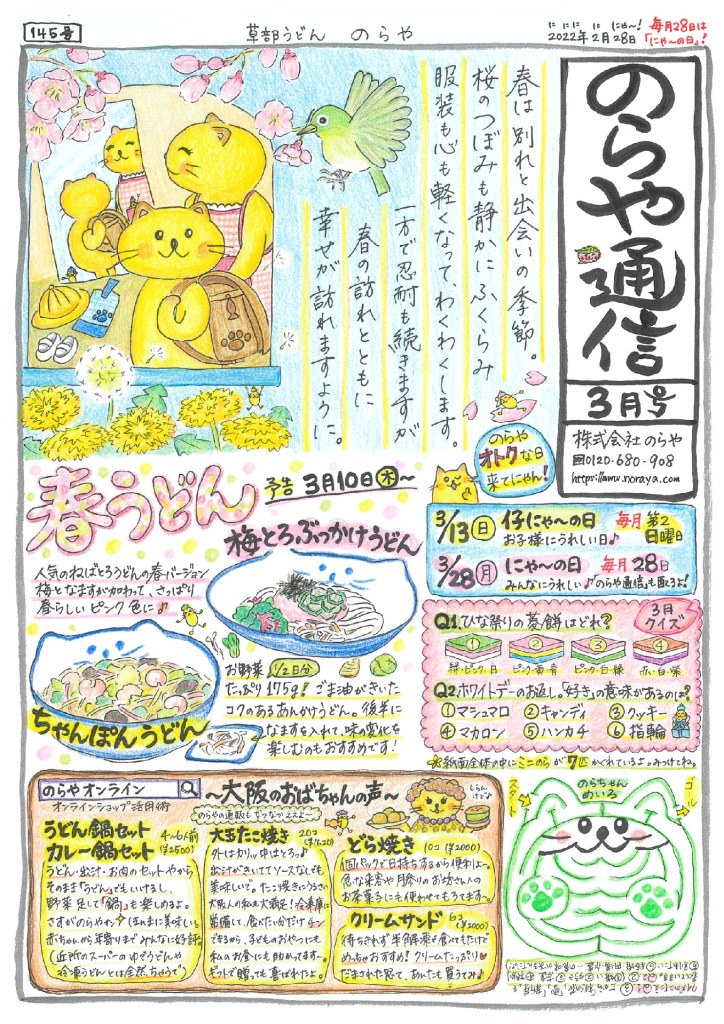 145号
草部うどん のらや
に に に に にゃ〜!
2022年2月28日
毎月28日は
「にゃ〜の日」!
のらや通信
3月号
株式会社 のらや
0120-680-908
https://www.noraya.com
春は別れと出会いの季節。
桜のつぼみも静かにふくらみ
服装も心も軽くなって、わくわくします。
一方で忍耐も続きますが
春の訪れとともに
幸せが訪れますように。
のらや
オトクな日
来てにゃん!
春うどん
予告 3月10日(木)〜
梅とろぶっかけうどん
人気のねばとろうどんの春バージョン
梅となますが加わって、さっぱり
春らしいピンク色に♪
ちゃんぽんうどん
お野菜 1/2日分
たっぷり175g! ごま油がきいた
コクのあるあんかけうどん。後半に
なますを入れて、味の変化を
楽しむのもおすすめです!
3/13(日) 仔にゃ〜の日 毎月 第2日曜日
お子様にうれしい日♪
3/28(月) にゃ〜の日 毎月 28日
みんなにうれしい♪のらや通信も配るよ!
3月
クイズ
Q1.ひな祭りの菱餅はどれ?
① ② ③ ④
緑・ピンク・白 ピンク・黄・青 ピンク・白・緑 赤・白・紫
Q2.ホワイトデーのお返し。「好き」の意味があるのは?
①マシュマロ ②キャンディ ③クッキー
④マカロン ⑤ハンカチ ⑥指輪
※紙面全体の中にミニのらが7匹かくれているよ。みつけてね。
のらや オンライン
オンラインショップ活用術
〜大阪のおばちゃんの声〜
のらやの通販もなかなかエエよ〜
しらんけど♪
うどん鍋セット
カレー鍋セット
4〜6人前
(¥2500)
うどん・出汁・お肉のセットやから
そのまま「うどん」でもいけるし、
野菜足して「鍋」も楽しめるよ。
さすがのらやわ ほんまに美味しい。
赤ちゃんから年寄りまでみんなに好評
(近所のスーパーのゆでうどんや
冷凍うどんとは全然ちゃうで)
大玉たこ焼き 20コ
(¥1620)
外はカリッ中はとろ♪
出汁がきいててソースなしでも
美味しいで。たこ焼きにうるさい
大阪人の私も大満足!冷凍庫に
常備して、食べたい分だけチン
できるから、子どものおやつにも
私のお昼にも助かってます。
ギフトで贈っても喜ばれたよ。
どら焼き 10コ (¥2000)
1個パックで日持ちするから便利よ〜。
急な来客や月参りのお坊さんの
お茶菓子にも使わせてもろてます〜。
クリームサンド 6コ
(¥2000)
待ちきれず半解凍で食べてもたけど
めっちゃおすすめ! クリームたっぷり♥
だまされた思て、あんたも買うてみ♪
のらちゃん
めいろ
スタート
ゴール